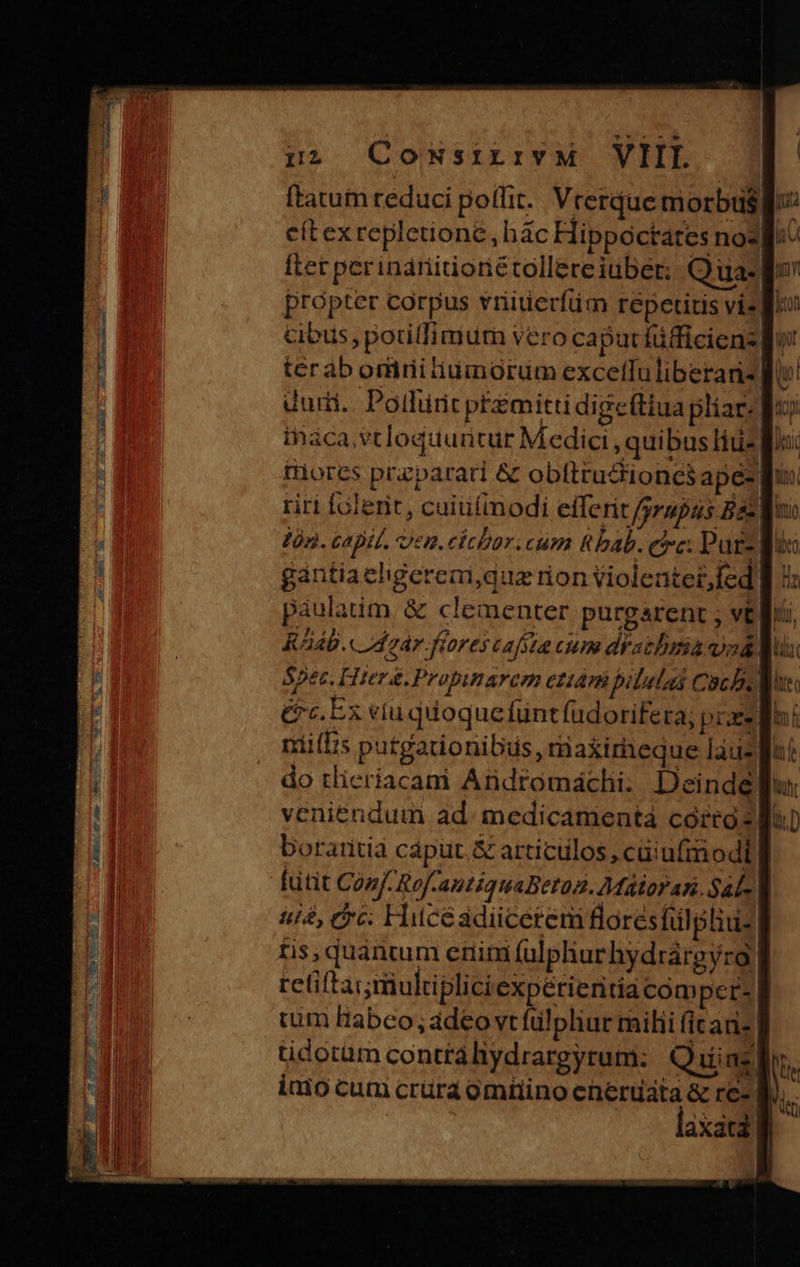 112 CONSILIVM VIII.
ſtatum reduci poſſit. Vterque morbus
eſt ex repletione, hãc Hippocrates no-
ſter per inanitionē tollere iubet. Qua-
propter corpus vniuerſum repetitis vi-
cibus, potiſſimum vero caput ſufficien-
ter ab omni humorum exceſſu liberan-
dum. Poſſunt præmitti digeſtiua phar-
maca, vt loquuntur Medici, quibus hu-
mores præparari & obſtructiones ape-
riri ſolent, cuiuſmodi eſſent ſyrupus Be-
ton. capil. ven. cichor. cum Rhab. &c. Pur-
gantia eligerem, quæ non violenter, ſed
paulatim & clementer purgarent, vt
Rhab. Agar. flores caſsiæ cum drachma vna
Spec. Hieræ. Propinarem etiam pilulas Coch.
&c. Ex vſu quoque ſunt ſudorifera, præ-
miſſis purgationibus, maximeque lau-
do theriacam Andromachi. Deinde
veniendum ad medicamenta corro-
borantia caput & articulos, cuiuſmodi
ſunt Conſ. Roſ. antiqua Beton. Maioran. Sal-
uiæ, &c. Huic adiicerem flores ſulphu-
ris, quantum enim ſulphur hydrargyro
reſiſtat, multiplici experientia comper-
tum habeo, adeo vt ſulphur mihi ſit an-
tidotum contra hydrargyrum. Quin-
imo cum crura omnino eneruata & re-
laxata